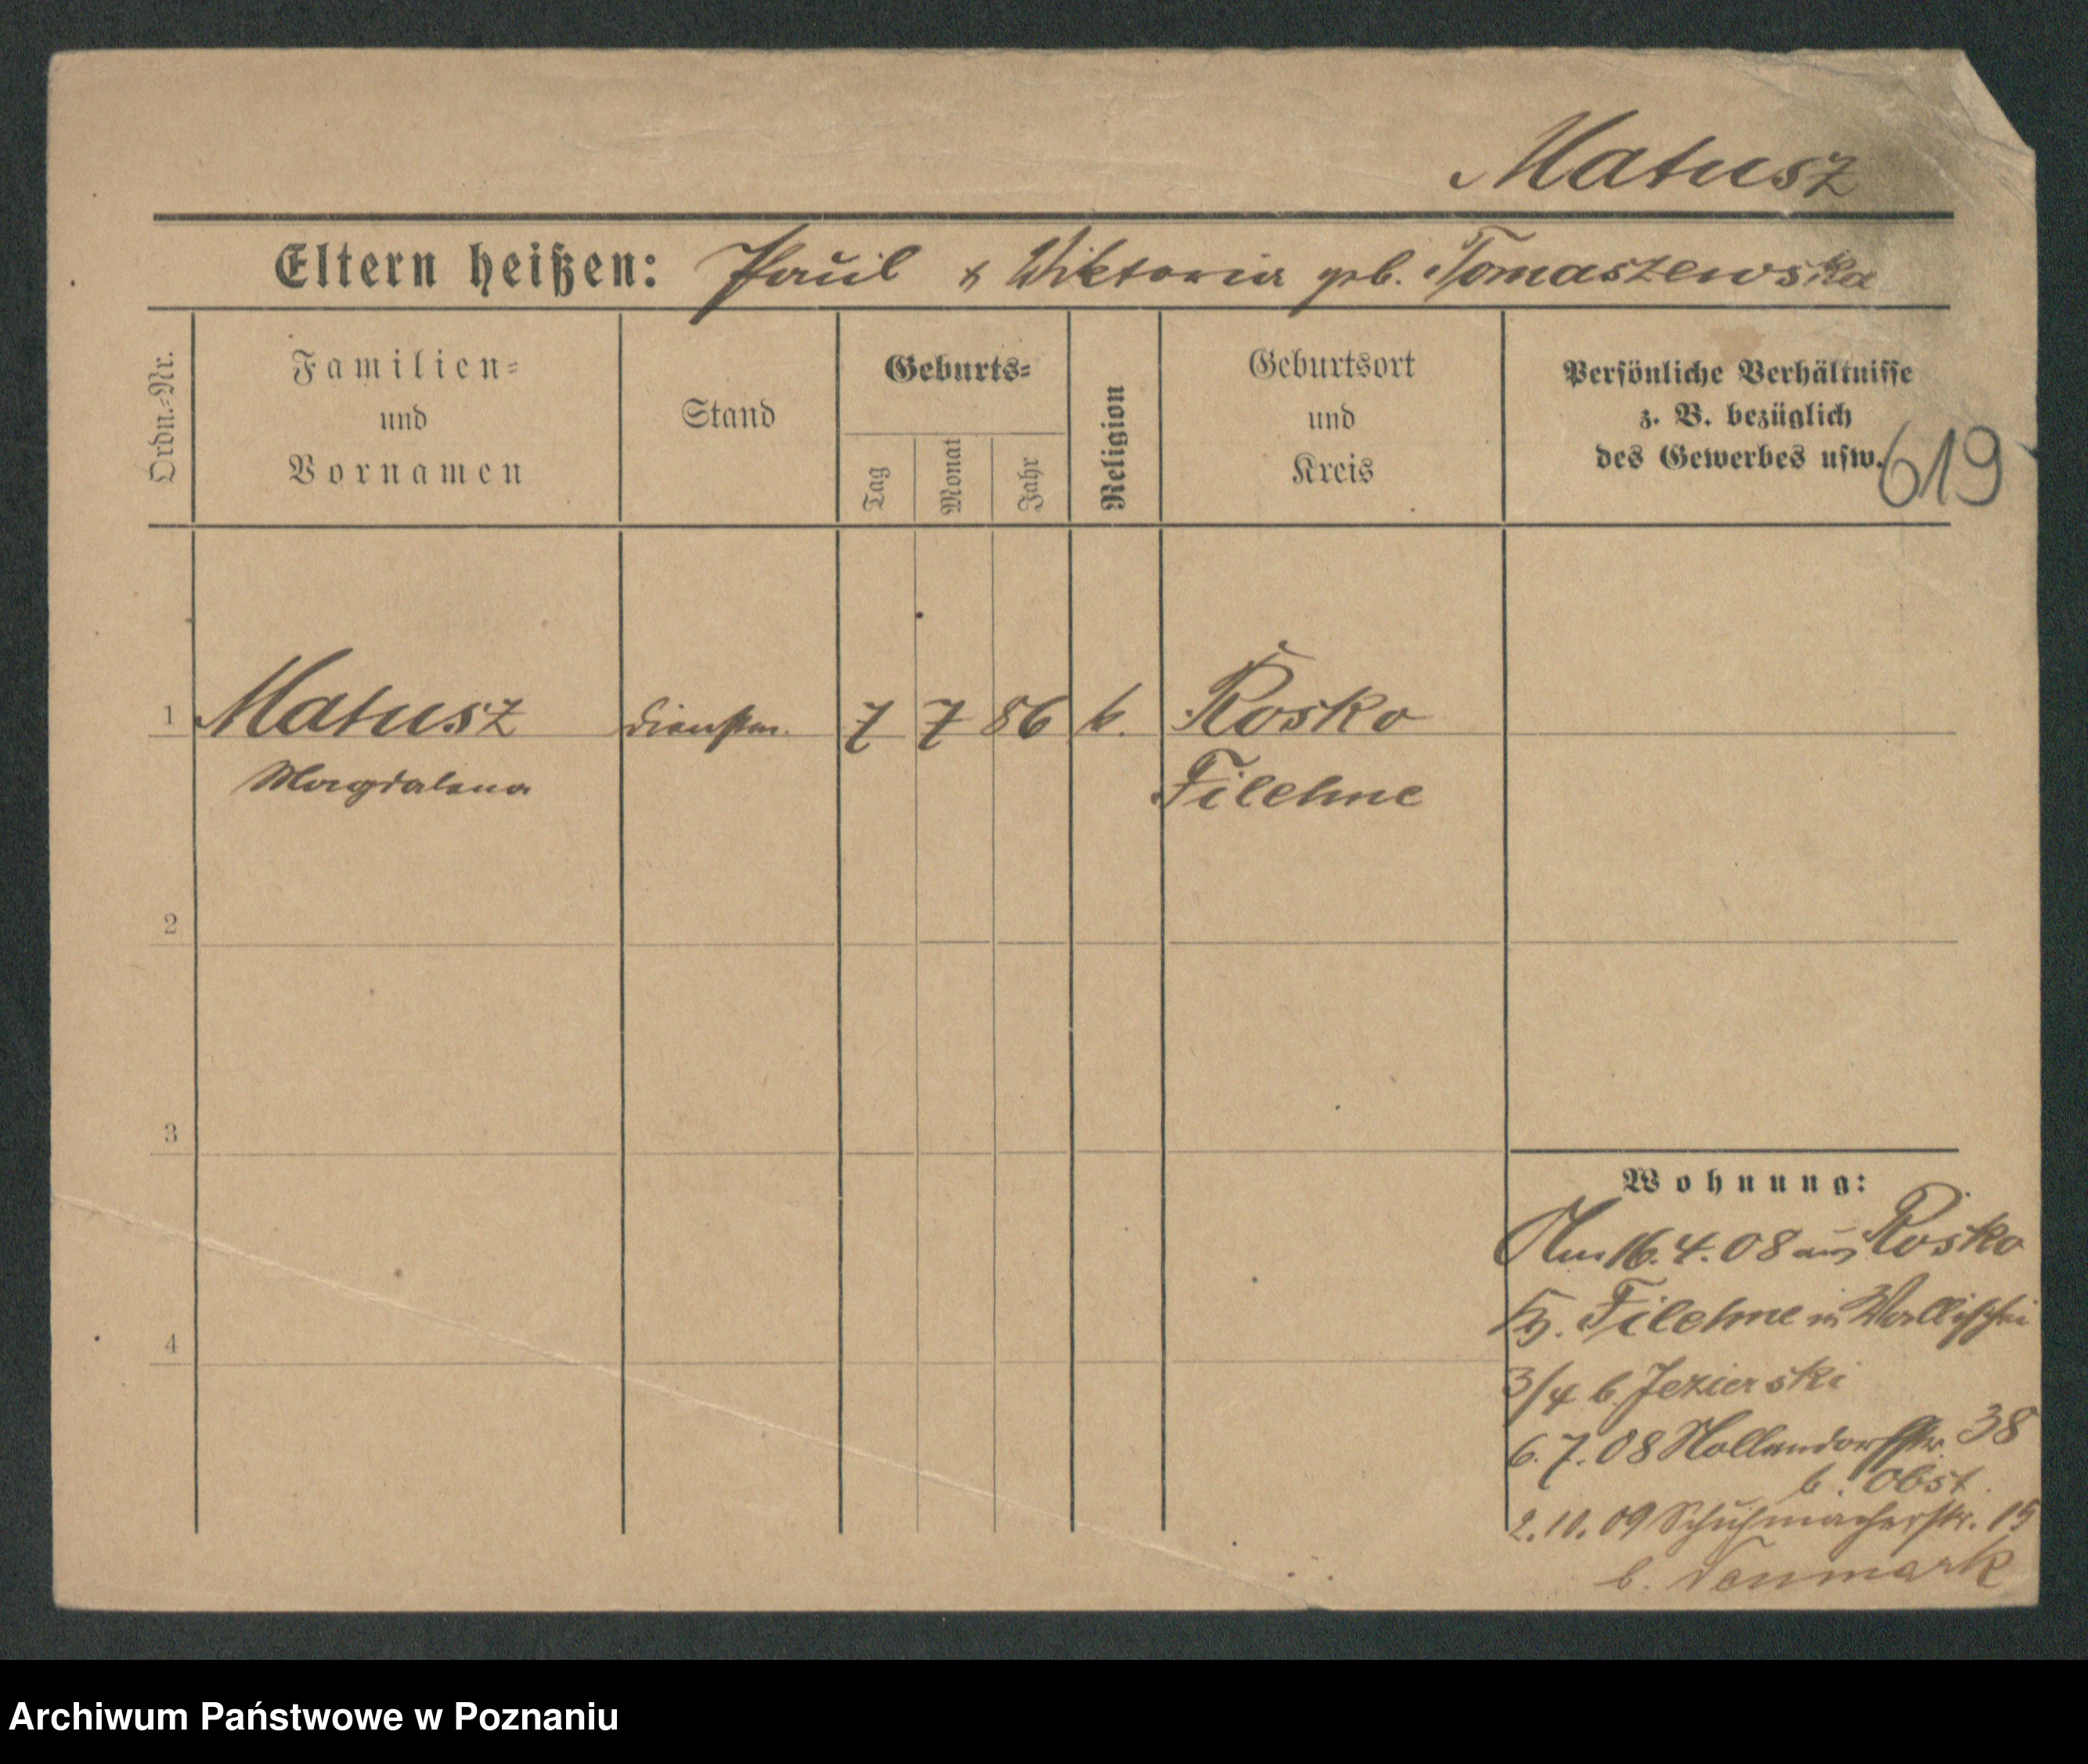 Matusz
Eltern heißen: Paul & Wiktoria geb. Tomaszewska
Ordn.-Nr.
Familien-
und
Vornamen
Stand
Geburts-
Tag
Monat
Jahr
Religion
Geburtsort
und
Kreis
Persönliche Verhältnisse
z. B. bezüglich
des Gewerbes usw.
619
1 Matusz Dienstm. 7 7 86 k. Rosko
Magdalena Filehne
2
3
4
Wohnung:
Am 16.4.08 aus Rosko
Kr. Filehne in Wallischei
3/4 b. Jezierski
6.7.08 Nollendorfstr. 38
b. Obst.
2.10.09 Schuhmacherstr. 15
b. Denmark
Archiwum Państwowe w Poznaniu